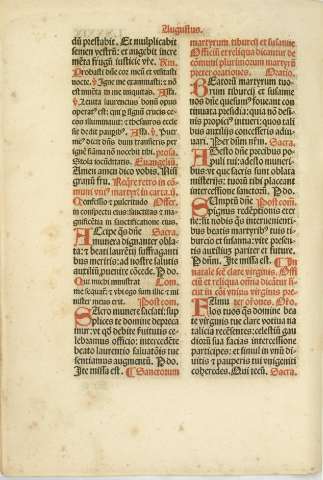 Augustus.
dũ prestabit. Et multiplicabit
semen vestrũ: et augebit incre
mẽta frugũ iusticie vr̃e. Rm̃.
Probasti dñe cor meũ et visitasti
nocte. Igne me examinasti: et nõ
est inuẽta in me iniquitas. Alla.
operat⁹ est: qui p̃ signũ crucis ce-
cos illuminauit: et thesauros eccle
sie dedit paupib⁹. Alla.
me⁹ dicit dñs dum transieris per
ignẽ flamma nõ nocebit tibi. prosa.
Stola iocũditatis. Euangeliũ.
Amen amen dico vobis. Nisi
granũ fru. Reqre retro in cõ-
muni vni⁹ martyris in carta.
Confessio et pulcritudo Offer.
in conspectu eius: sanctitas et ma-
gnificentia in sanctificatione eius.
Accipe q̃s dñe Secra.
munera dignanter obla-
ta: et beati laurẽtij suffraganti
bus meritis: ad nostre salutis
auxiliũ, puenire cõcede. P do.
Qui michi ministrat Com.
me sequat̃: et vbi ego sum illic et mi
nister meus erit. Post com.
Sacro munere saciati: sup
plices te domine depreca
mur: vt q̃d debite seruitutis ce-
lebramus officio: intercedẽte
beato laurentio saluatõis tue
sentiamus augmentũ. P do.
Ite missa est. Sanctorum
martyrum tiburcij et susanne
Officiũ et reliqua dicantur de
cõmuni plurimorum martyrũ
preter orationes. Oratio.
Beatorũ martyrum tibur
tij et susanne
nos dñe quesum⁹ foueant con
tinuata presidia: quia nõ de-
sinis propici⁹ intueri: quos tali
bus auxilijs concesseris adiu-
uari. Per dñm nr̃m. Secra.
Adesto dñe precibus po
puli tui: adesto muneri-
bus: vt que sacris sunt oblata
misterijs: tuorũ tibi placeant
intercessione sanctorũ. P do.
Sumptũ dñe Post com.
pignus redẽptionis eter
ne: sit nobis q̃s interuenienti-
bus beatis martyrib⁹ tuis ti-
burcio et susanna: vite presen-
tis auxilius pariter et future.
P dñm. Ite missa est. In
natale sc̃e clare virginis. Offi
ciũ et reliqua omnia dicãtur si-
cut in cõi vnius virginis pre-
Famu ter ofones. Oĩo.
los tuos q̃s domine bea
te virginis tue clare votiua na
talicia recẽsentes: celestiũ gau
diorũ sua facias intercessione
participes: et simul in vnũ di-
uitis et pauperis tui vnigeniti
coheredes. Qui tecũ. Secra.